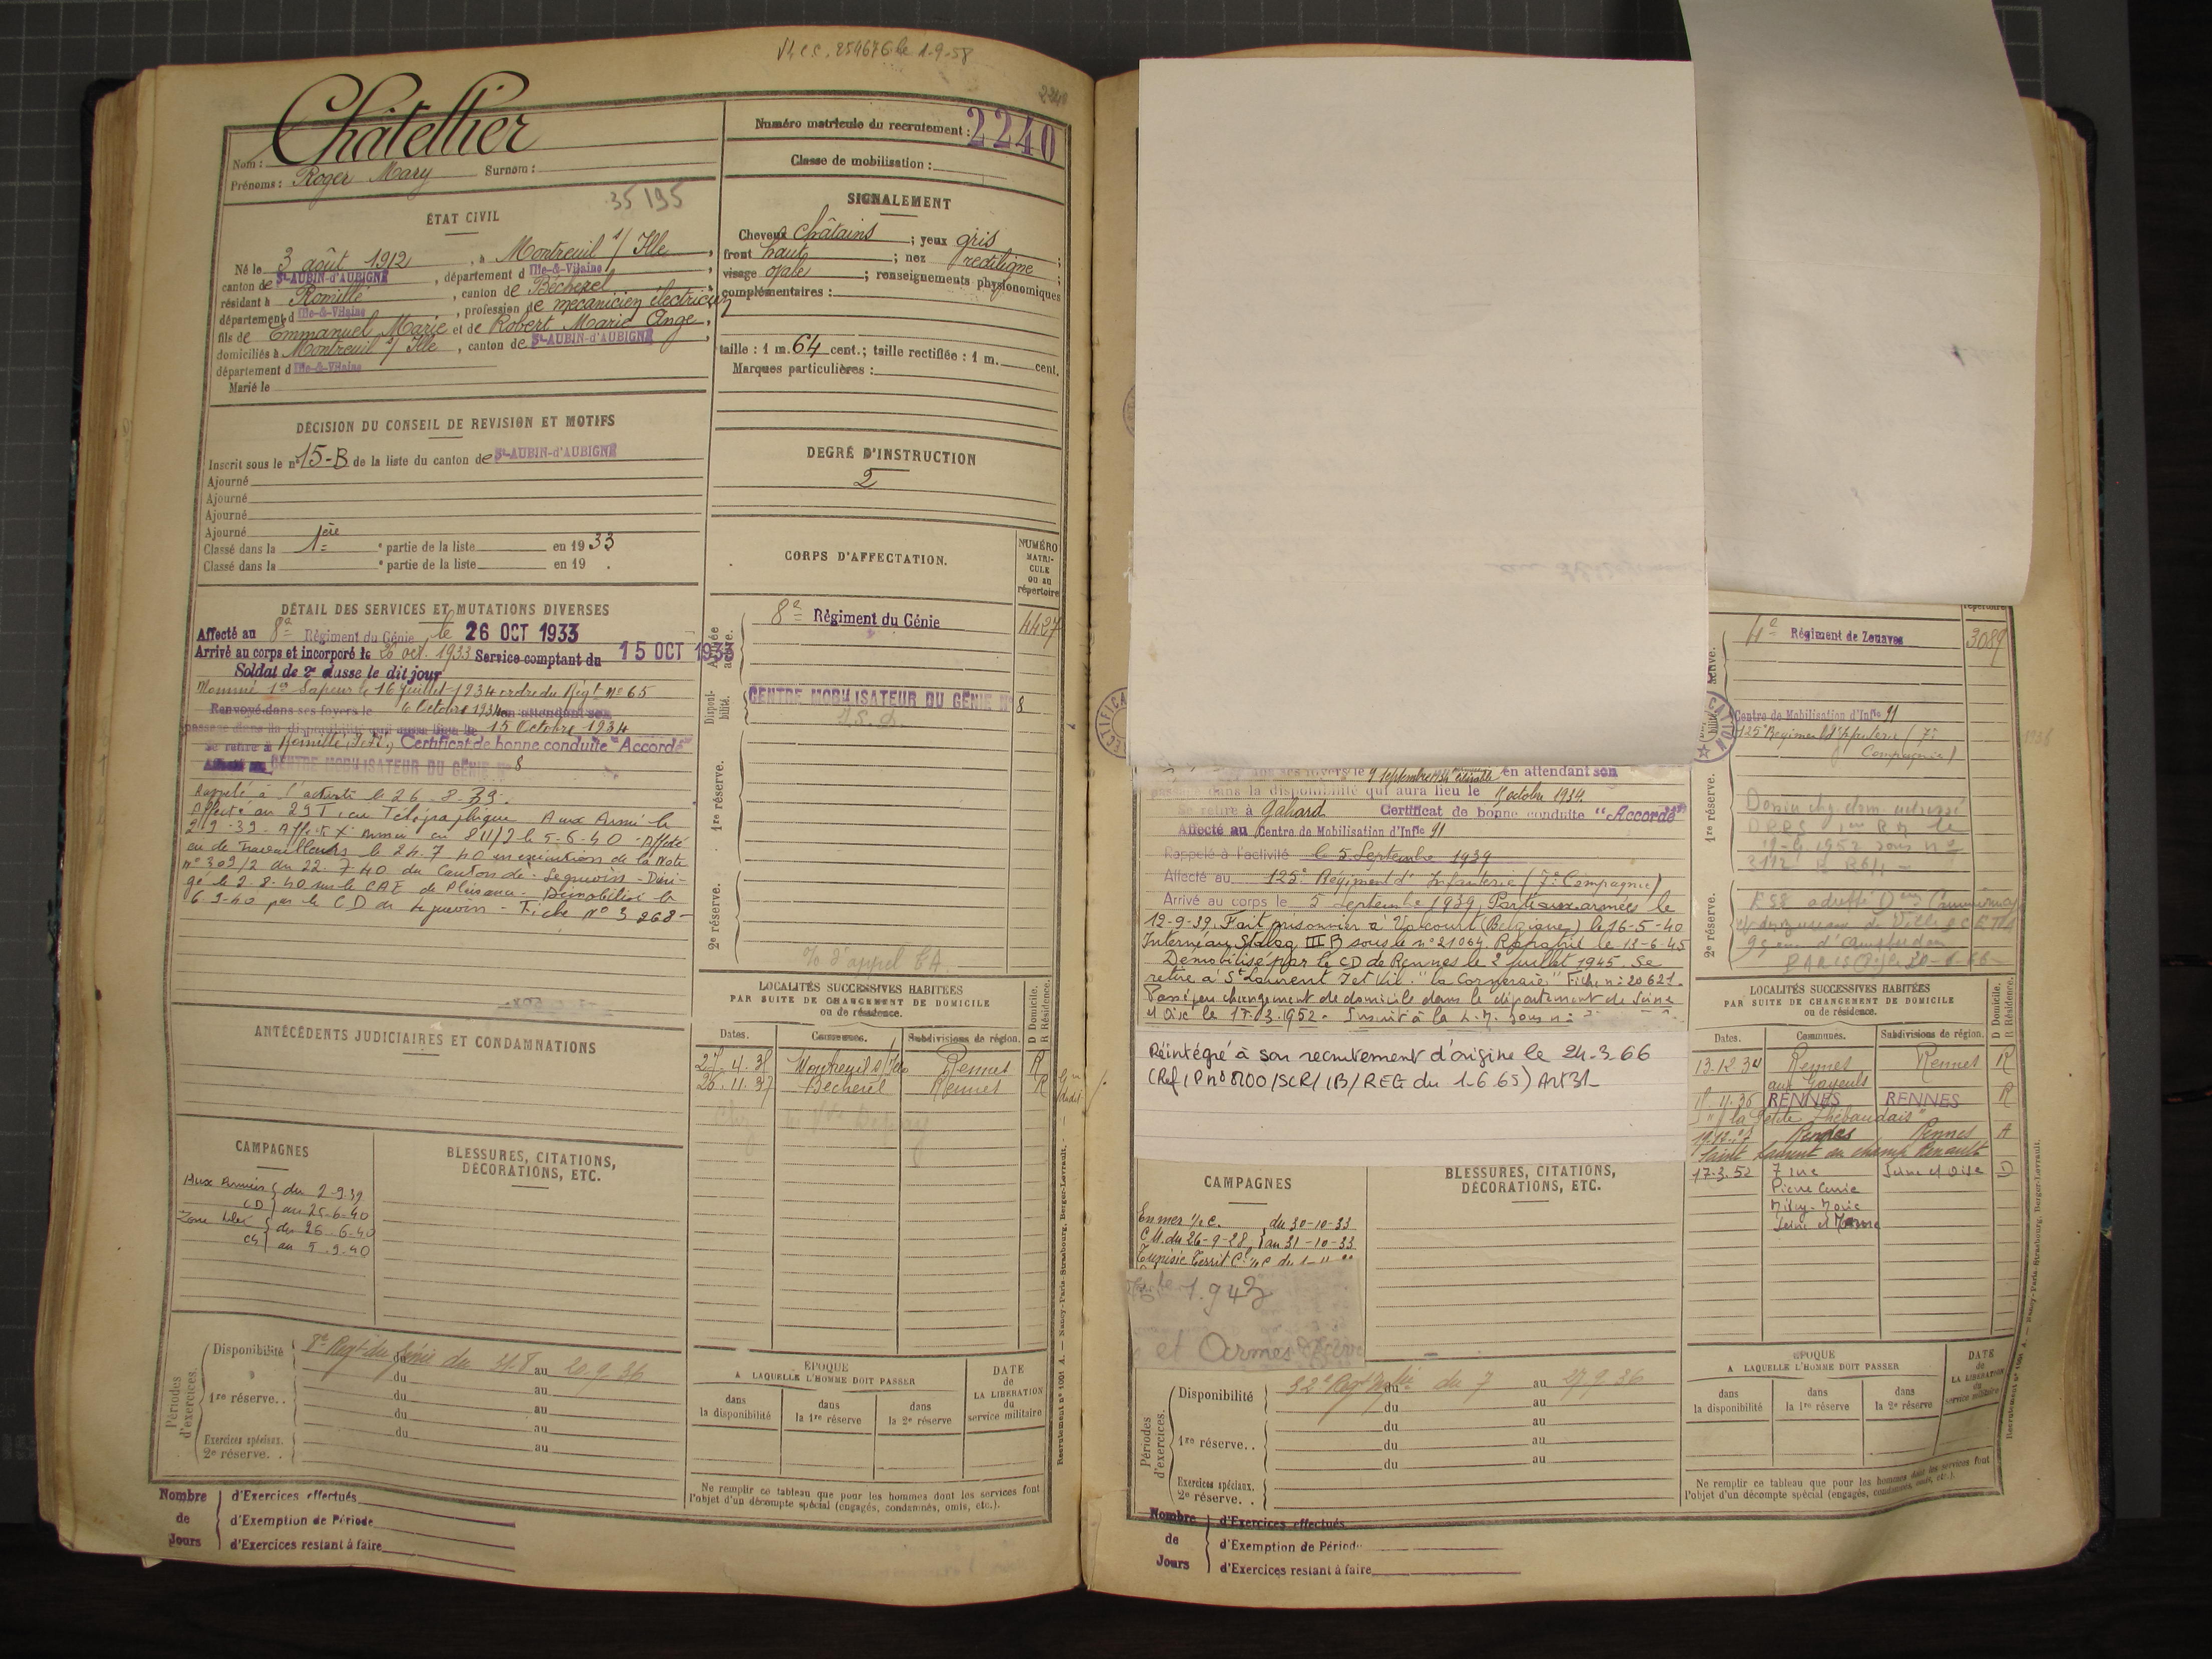 2240
Châtellier
Nom :
Prénoms : Roger Mary Surnom :
Numéro matricule du recrutement : 2240
Classe de mobilisation :
35 195
ÉTAT CIVIL
Né le 3 août 1912, à Montreuil s/ Ille,
canton de St-AUBIN-d'AUBIGNÉ, département d Ille-&-Vilaine,
résidant à Romillé, canton de Bécherel,
département d Ille-&-Vilaine, profession de mécanicien électricien
fils de Emmanuel Marie et de Robert Marie Ange,
domiciliés à Montreuil s/ Ille, canton de St-AUBIN-d'AUBIGNÉ
département d Ille-&-Vilaine
Marié le
SIGNALEMENT
Cheveux châtains ; yeux gris ;
front haut ; nez rectiligne ;
visage ovale ; renseignements physionomiques
complémentaires :
taille : 1 m. 64 cent.; taille rectifiée : 1 m. cent.
Marques particulières :
DÉCISION DU CONSEIL DE REVISION ET MOTIFS
Inscrit sous le n° 15-B de la liste du canton de St-AUBIN-d'AUBIGNÉ
Ajourné
Ajourné
Ajourné
Ajourné
Classé dans la 1ère e partie de la liste en 1933
Classé dans la e partie de la liste en 19 .
DEGRÉ D'INSTRUCTION
2
DÉTAIL DES SERVICES ET MUTATIONS DIVERSES
Affecté au 8e Régiment du Génie le 26 OCT 1933
Arrivé au corps et incorporé le 26 oct. 1933 Service comptant du 15 OCT 1933
Soldat de 2e classe le dit jour
Nommé 1er Sapeur le 16 juillet 1934 ordre du Régt N° 65
Renvoyé dans ses foyers le 6 Octobre 1934 en attendant son
passage dans la disponibilité qui aura lieu le 15 Octobre 1934
Se retire à Romillé, I et V, Certificat de bonne conduite "Accordé"
CENTRE MOBILISATEUR DU GÉNIE N° 8
Rappelé à l'activité le 26-8-39.
Affecté au 29 T, en Télégraphique Aux Armées le
2-9-39. Affecté X Armée en 811/2 le 5-6-40 - Affecté
en de Travailleurs le 24.7.40 en exécution de la Note
n° 309/2 du 22.7.40 du Canton de Léguevin - Diri-
gé le 2.8.40 sur le CAE de Plaisance. Démobilisé le
6-9-40 par le CD de Léguevin - Fiche N° 3268-
CORPS D'AFFECTATION.
NUMÉRO MATRICULE ou au répertoire
Armée active.
8e Régiment du Génie 4427
Disponibilité.
CENTRE MOBILISATEUR DU GÉNIE N° 8
1re réserve.
2e réserve.
ANTÉCÉDENTS JUDICIAIRES ET CONDAMNATIONS
LOCALITÉS SUCCESSIVES HABITÉES
PAR SUITE DE CHANGEMENT DE DOMICILE
ou de résidence.
D Domicile.
R Résidence.
Dates. Communes. Subdivisions de région.
27.4.35 Montreuil s/Ille Rennes R
26.11.37 Bécherel Rennes R
CAMPAGNES
Aux Armées du 2-9-39
CD au 25-6-40
Zone libre du 26-6-40
CS au 5-9-40
BLESSURES, CITATIONS,
DÉCORATIONS, ETC.
Périodes d'exercices.
Disponibilité 8e Regt du Génie du 31.8 au 20.9.36
du au
1re réserve. . du au
du au
Exercices spéciaux. du au
2e réserve. . au
ÉPOQUE
A LAQUELLE L'HOMME DOIT PASSER
dans la disponibilité
dans la 1re réserve
dans la 2e réserve
DATE de LA LIBÉRATION du service militaire
Ne remplir ce tableau que pour les hommes dont les services font
l'objet d'un décompte spécial (engagés, condamnés, omis, etc.).
Recrutement n° 1001 A. — Nancy-Paris-Strasbourg, Berger-Levrault.
Nombre de Jours
d'Exercices effectués
d'Exemption de Période
d'Exercices restant à faire
répertoire
4e Régiment de Zouaves 3089
Centre de Mobilisation d'Infie 91
125e Régiment d'Infanterie (7e
Compagnie)
ses foyers le 9 septembre 1934 en attendant son
passage dans la disponibilité qui aura lieu le 15 octobre 1934.
Se retire à Gahard Certificat de bonne conduite "Accordé"
Affecté au Centre de Mobilisation d'Infie 91
Rappelé à l'activité le 5 Septembre 1939
Affecté au 125e Régiment d'Infanterie (7e Compagnie)
Arrivé au corps le 5 septembre 1939, Parti aux armées le
12-9-39. Fait prisonnier à (Belgique) le 16-5-40
Interné au Stalag III B sous le n° 21064. Rapatrié le 12-6-45
Démobilisé par le CD de Rennes le 2 juillet 1945. Se
retire à St Laurent I et Vil. Fiche n° 20621.
Passé par changement de domicile dans le département de Seine
et Oise le 17.03.1952. Inscrit à la L.M. sous n°
Réintégré à son recrutement d'origine le 24.3.66
(Ref. P n° 8200/SCR/1B/REG du 1-6-65) Art 31-
1re réserve.
2e réserve.
LOCALITÉS SUCCESSIVES HABITÉES
PAR SUITE DE CHANGEMENT DE DOMICILE
ou de résidence.
D Domicile.
R Résidence.
Dates. Communes. Subdivisions de région.
13.12.34 Rennes Rennes R
aux Gayeuls
RENNES RENNES R
Rennes Rennes
Saint Laurent
17.3.52 7 rue Seine et Oise D
Pierre Curie
CAMPAGNES
En mer 1/2 C. du 30-10-33
C.M. du 26-9-28 au 31-10-33
BLESSURES, CITATIONS,
DÉCORATIONS, ETC.
et Armes
Périodes d'exercices.
Disponibilité du 7 au 27.9.36
du au
1re réserve. . du au
du au
du au
Exercices spéciaux.
2e réserve. .
ÉPOQUE
A LAQUELLE L'HOMME DOIT PASSER
dans la disponibilité
dans la 1re réserve
dans la 2e réserve
DATE de LA LIBÉRATION du service militaire
Ne remplir ce tableau que pour les hommes dont les services font
l'objet d'un décompte spécial (engagés, condamnés, omis, etc.).
Nombre de Jours
d'Exercices effectués
d'Exemption de Période
d'Exercices restant à faire